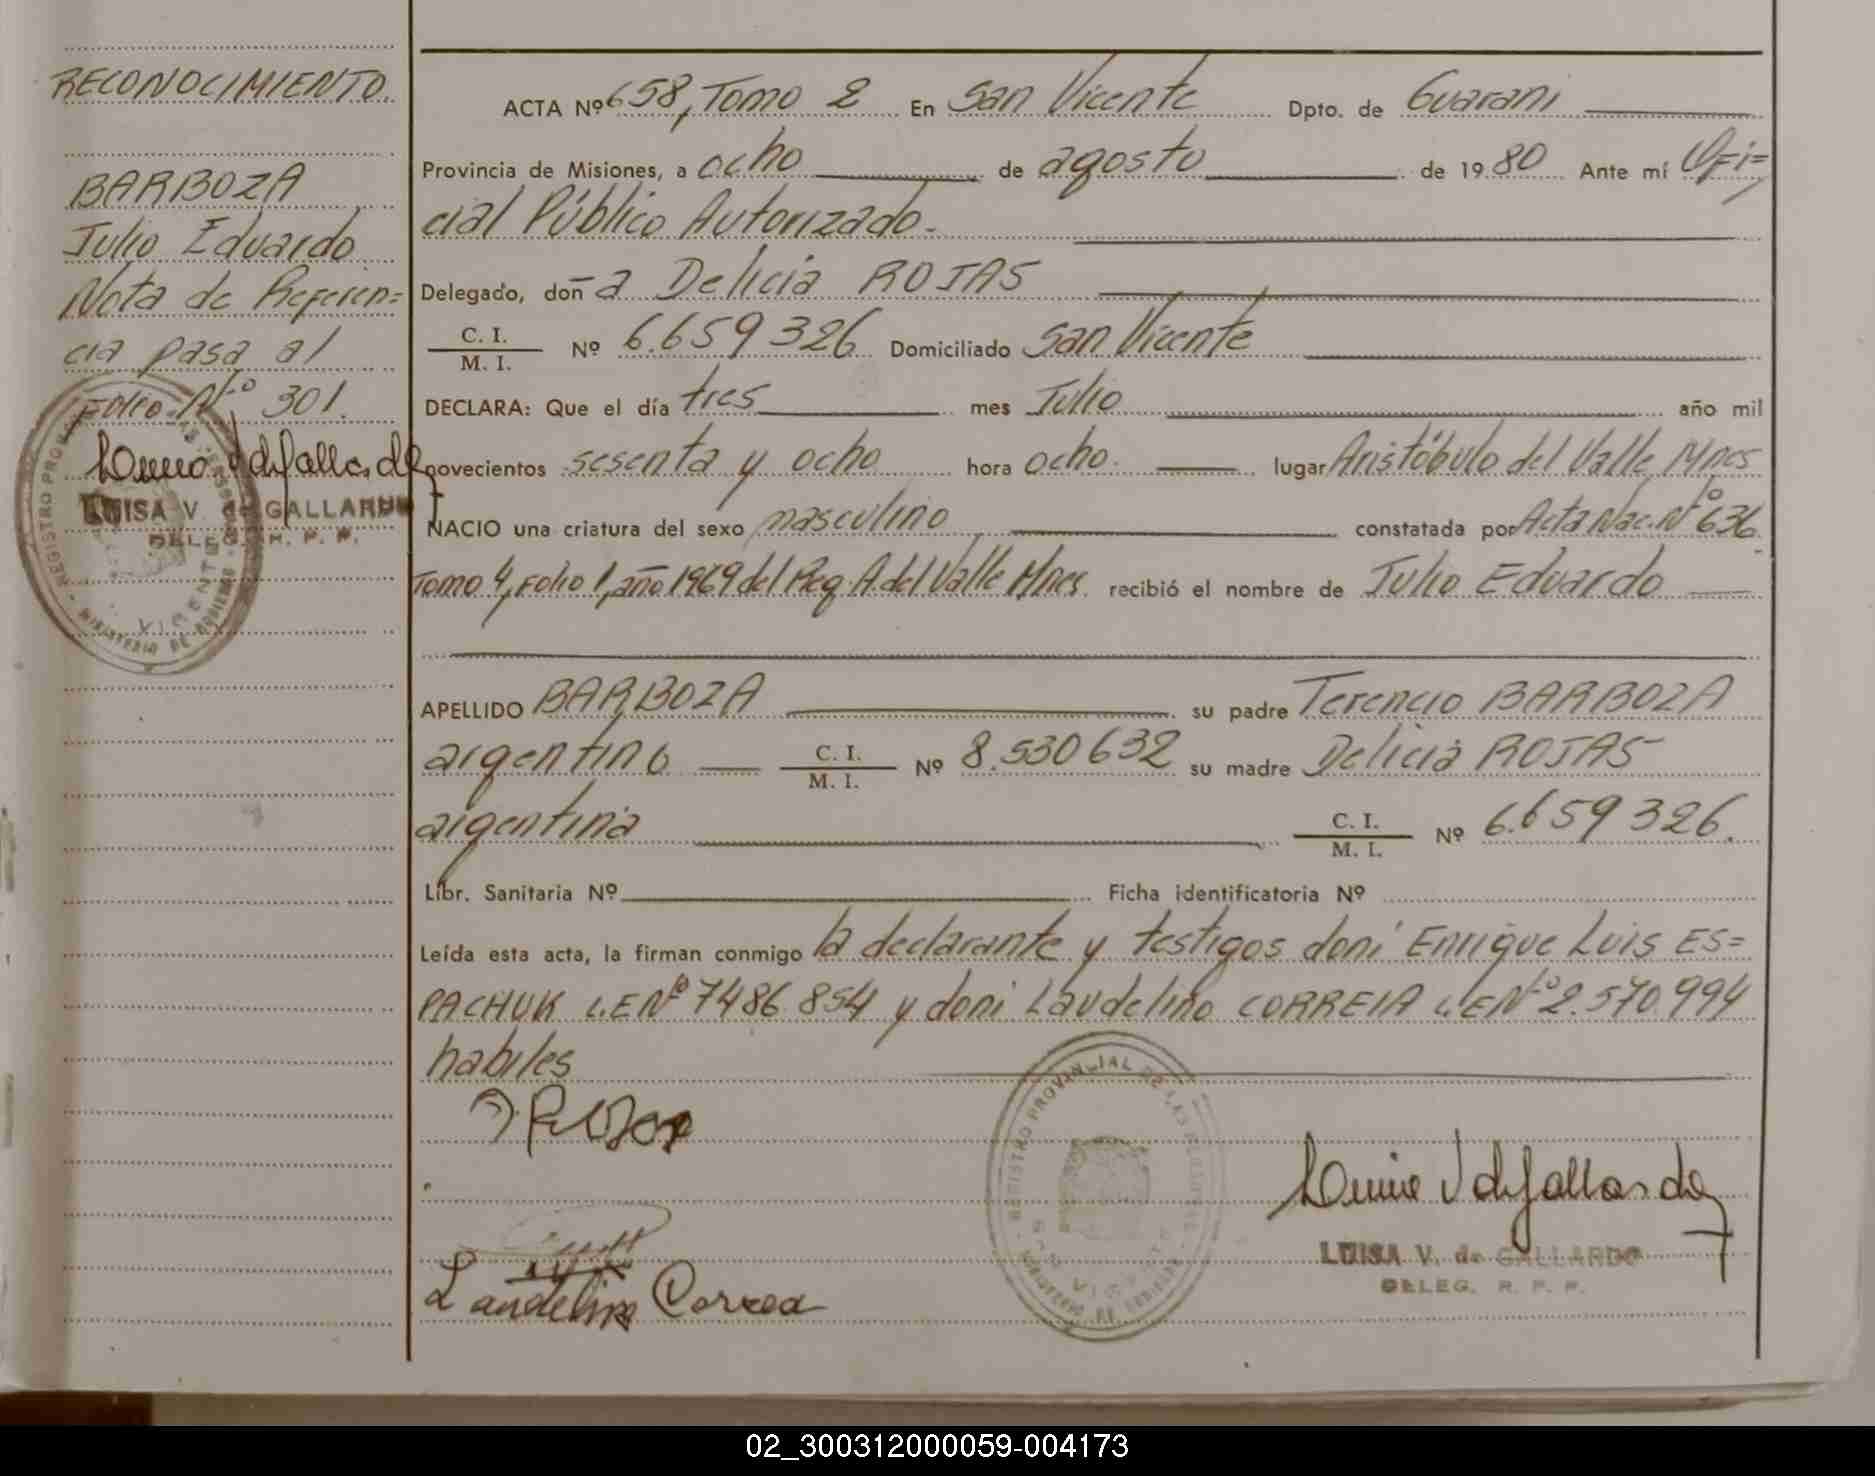 RECONOCIMIENTO.
BARBOZA
Julio Eduardo
Nota de Referen=
cia pasa al
Folio Nº 301.
LUISA V. de GALLARDO
DELEG. R. P. P.
ACTA Nº 658, Tomo 2 En San Vicente Dpto. de Guarani
Provincia de Misiones, a ocho de agosto de 1980 Ante mí Ofi=
cial Público Autorizado.
Delegado, don-a Delicia ROJAS
C. I.
M. I. Nº 6.659326 Domiciliado San Vicente
DECLARA: Que el día tres mes Julio año mil
novecientos sesenta y ocho hora ocho. lugar Aristóbulo del Valle Mnes
NACIO una criatura del sexo masculino constatada por Acta Nac. Nº 636
Tomo 4, Folio 1, año 1969 del Reg. A. del Valle Mnes. recibió el nombre de Julio Eduardo
APELLIDO BARBOZA su padre Terencio BARBOZA
argentino C. I.
M. I. Nº 8.530632 su madre Delicia ROJAS
argentina C. I.
M. I. Nº 6.659326.
Libr. Sanitaria Nº Ficha identificatoria Nº
Leída esta acta, la firman conmigo la declarante y testigos doni Enrique Luis ES=
PACHUK L.E Nº 7486.854 y doni Laudelino CORREIA L.E Nº 2.570.994
habiles
REGISTRO PROVINCIAL DE LAS PERSONAS
MINISTERIO DE GOBIERNO
SAN VICENTE
Laudelino Correa
LUISA V. de GALLARDO
DELEG. R. P. P.
02_300312000059-004173